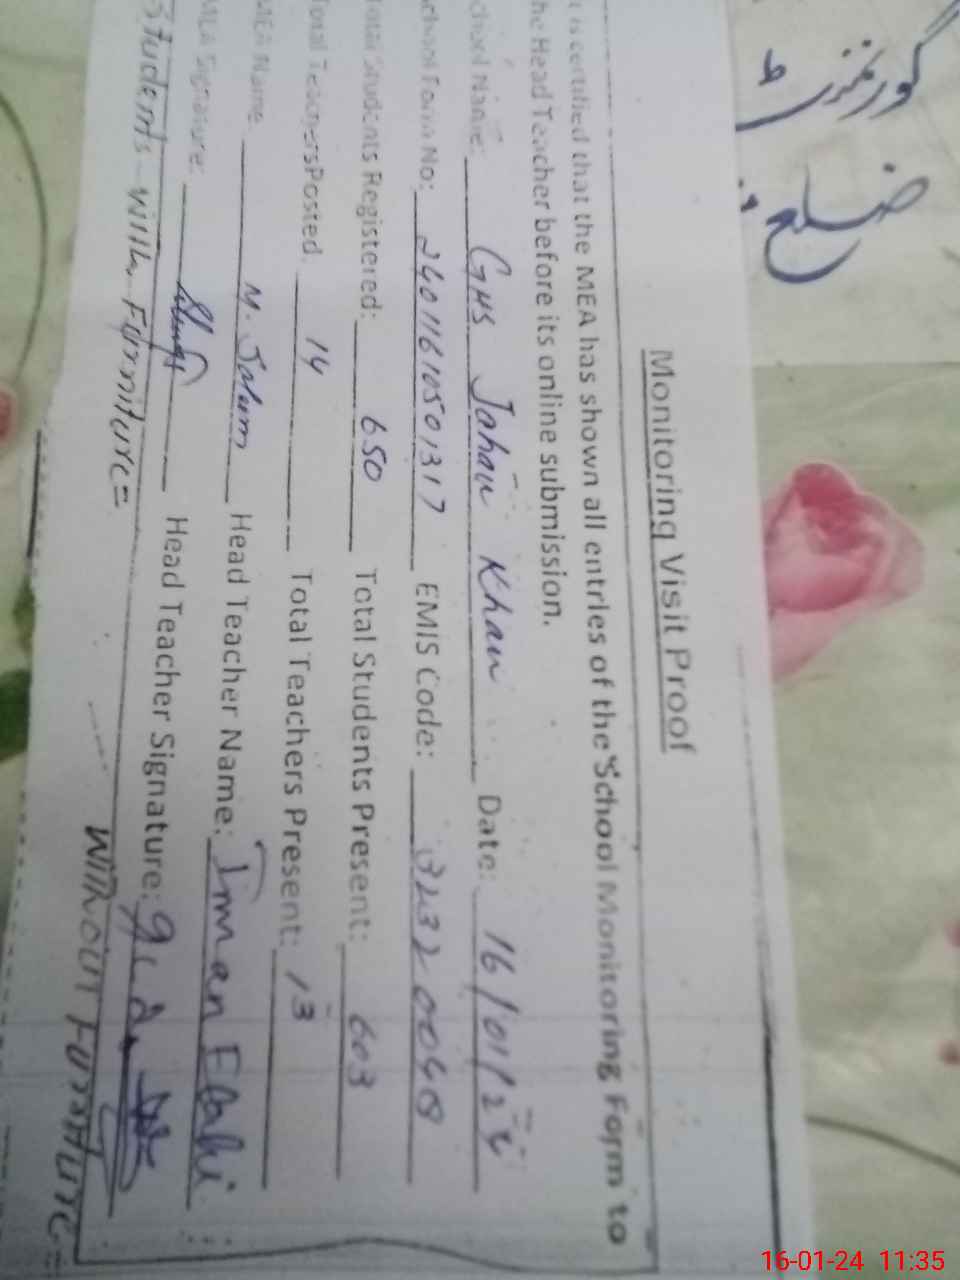 گورنمنٹ
ضلع
Monitoring Visit Proof
is certified that the MEA has shown all entries of the School Monitoring Form to
he Head Teacher before its online submission.
chool Name: GHS Jahan Khan Date: 16/01/24
chool Form No: 24011610501317 EMIS Code: 32320048
Total Students Registered: 650 Total Students Present: 603
Total Teachers Posted 14 Total Teachers Present: 13
MEA Name M. Salum Head Teacher Name: Iman Elahi
MEA Signature: Head Teacher Signature:
Students with Furniture=
Without Furniture=
16-01-24 11:35